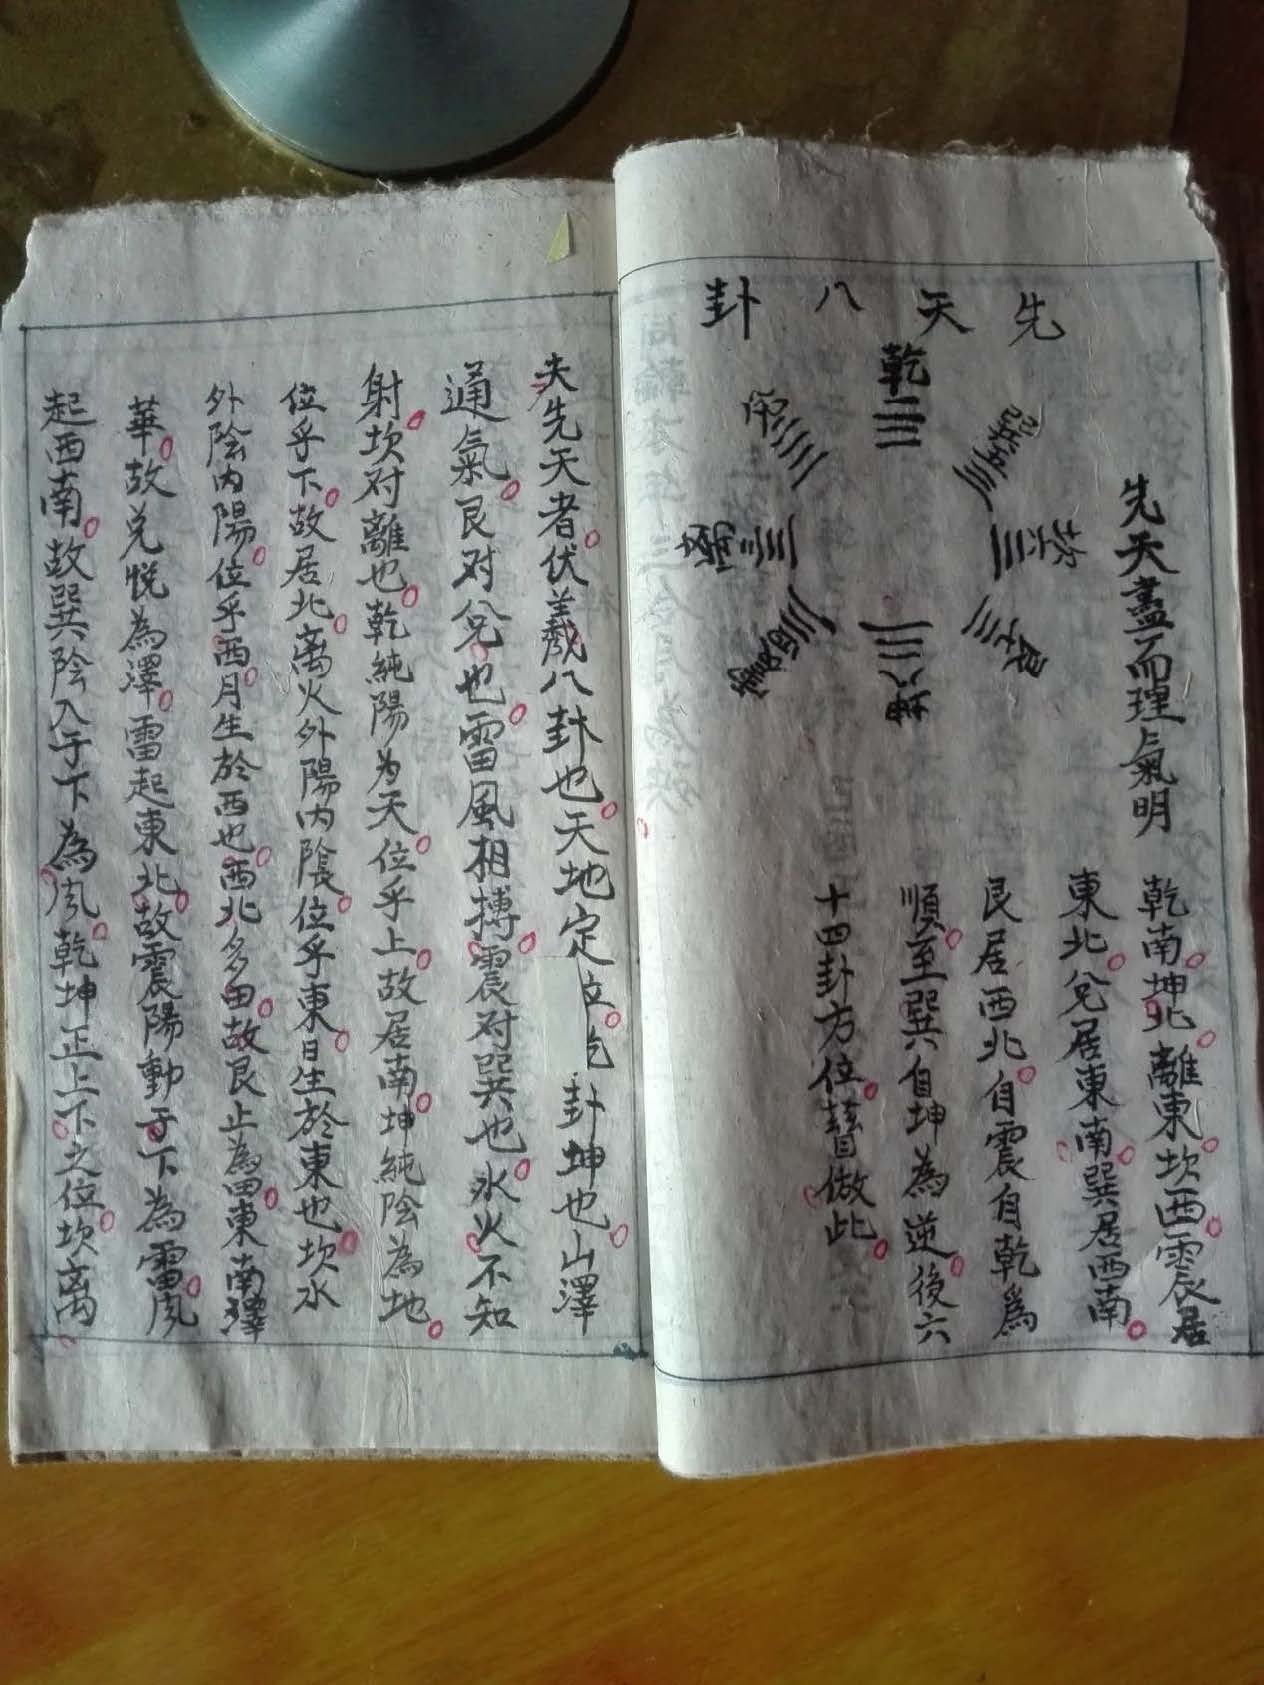 先天八卦
乾
兌
巽
坎
艮
坤
震
先天盡而理氣明
乾南坤北離東坎西震居
東北兌居東南巽居西南
艮居西北自震自乾為
順至巽自坤為逆後六
十四卦方位皆做此
夫先天者伏羲八卦也天地定位乾卦坤也山澤
通氣艮对兌也雷風相搏震对巽也水火不知
射坎对離也乾純陽为天位乎上故居南坤純陰為地
位乎下故居北离火外陽内陰位乎東日生於東也坎水
外陰内陽位乎西月生於西也西北多田故艮止為田東南澤
華故兌悦為澤雷起東北故震陽動于下為雷風
起西南故巽陰入于下為風乾坤正上下之位坎离